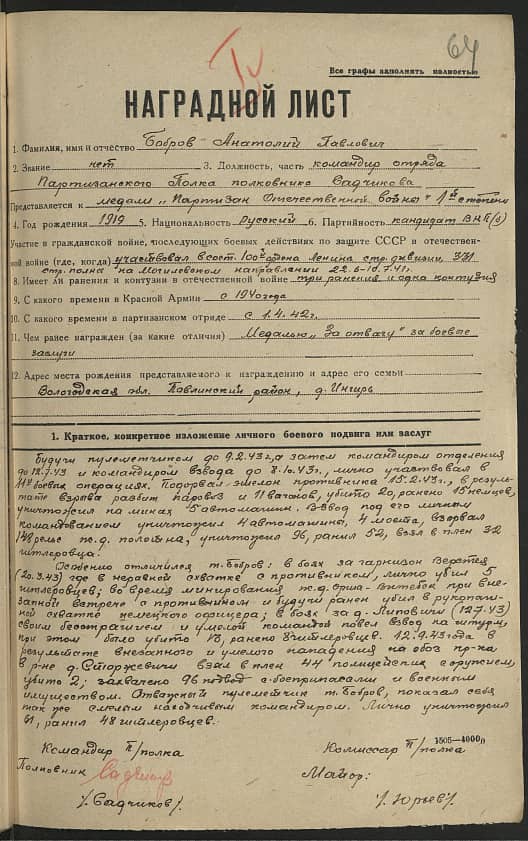 IV
64
Все графы заполнять полностью
НАГРАДНОЙ ЛИСТ
1. Фамилия, имя и отчество Бобров Анатолий Павлович
2. Звание нет 3. Должность, часть командир отряда
Партизанского Полка полковника Садчикова
Представляется к медали „Партизан Отечественной войны" 1й степени
4. Год рождения 1919 5. Национальность Русский 6. Партийность кандидат ВКП(б)
Участие в гражданской войне, последующих боевых действиях по защите СССР и отечествен-
ной войне (где, когда) участвовал в сост. 100й ордена Ленина стр. дивизии, 331
стр. полка на Могилевском направлении 22.6-10.7.41г.
8. Имеет ли ранения и контузии в отечественной войне три ранения и одна контузия
9. С какого времени в Красной Армии с 1940 года
10. С какого времени в партизанском отряде с 1.4.42г.
11. Чем ранее награжден (за какие отличия) Медалью „За отвагу" за боевые
заслуги
12. Адрес места рождения представляемого к награждению и адрес его семьи
Вологодская обл. Павлинский район, д. Ингирь
1. Краткое, конкретное изложение личного боевого подвига или заслуг
Будучи пулеметчиком до 9.2.43г, а затем командиром отделения
до 12.7.43 и командиром взвода до 8.10.43г., лично участвовал в
11и боевых операциях. Подорвал эшелон противника 15.2.43г., в резуль-
тате взрыва разбит паровоз и 11 вагонов, убито 20, ранено 15 немцев,
уничтожил на минах 5 автомашин. Взвод под его личным
командованием уничтожил 4 автомашины, 4 моста, взорвал
148 рельс ж.д. полотна, уничтожил 96, ранил 52, взял в плен 32
гитлеровца.
Особенно отличился т. Бобров: в боях за гарнизон
(20.3.43) где в неравной схватке с противником, лично убил 5
гитлеровцев; во время минирования ж.д. Орша-Витебск при вне-
запной встрече с противником и будучи ранен убил в рукопаш-
ной схватке немецкого офицера; в боях за д. Липовичи (12.7.43)
своим бесстрашием и умелой командой повел взвод на штурм,
при этом было убито 13, ранено 8 гитлеровцев. 12.9.43 года в
результате внезапного и умелого нападения на обоз пр-ка
в р-не д. Сторжевичи взял в плен 44 полицейских с оружием,
убито 2; захвачено 96 подвод с боеприпасами и военным
имуществом. Отважный пулеметчик т. Бобров, показал себя
так же смелым находчивым командиром. Лично уничтожил
61, ранил 48 гитлеровцев.
1505—4000
Командир п/полка Комиссар п/полка
Полковник Садчиков Майор:
/Садчиков/. /Юрьев/.